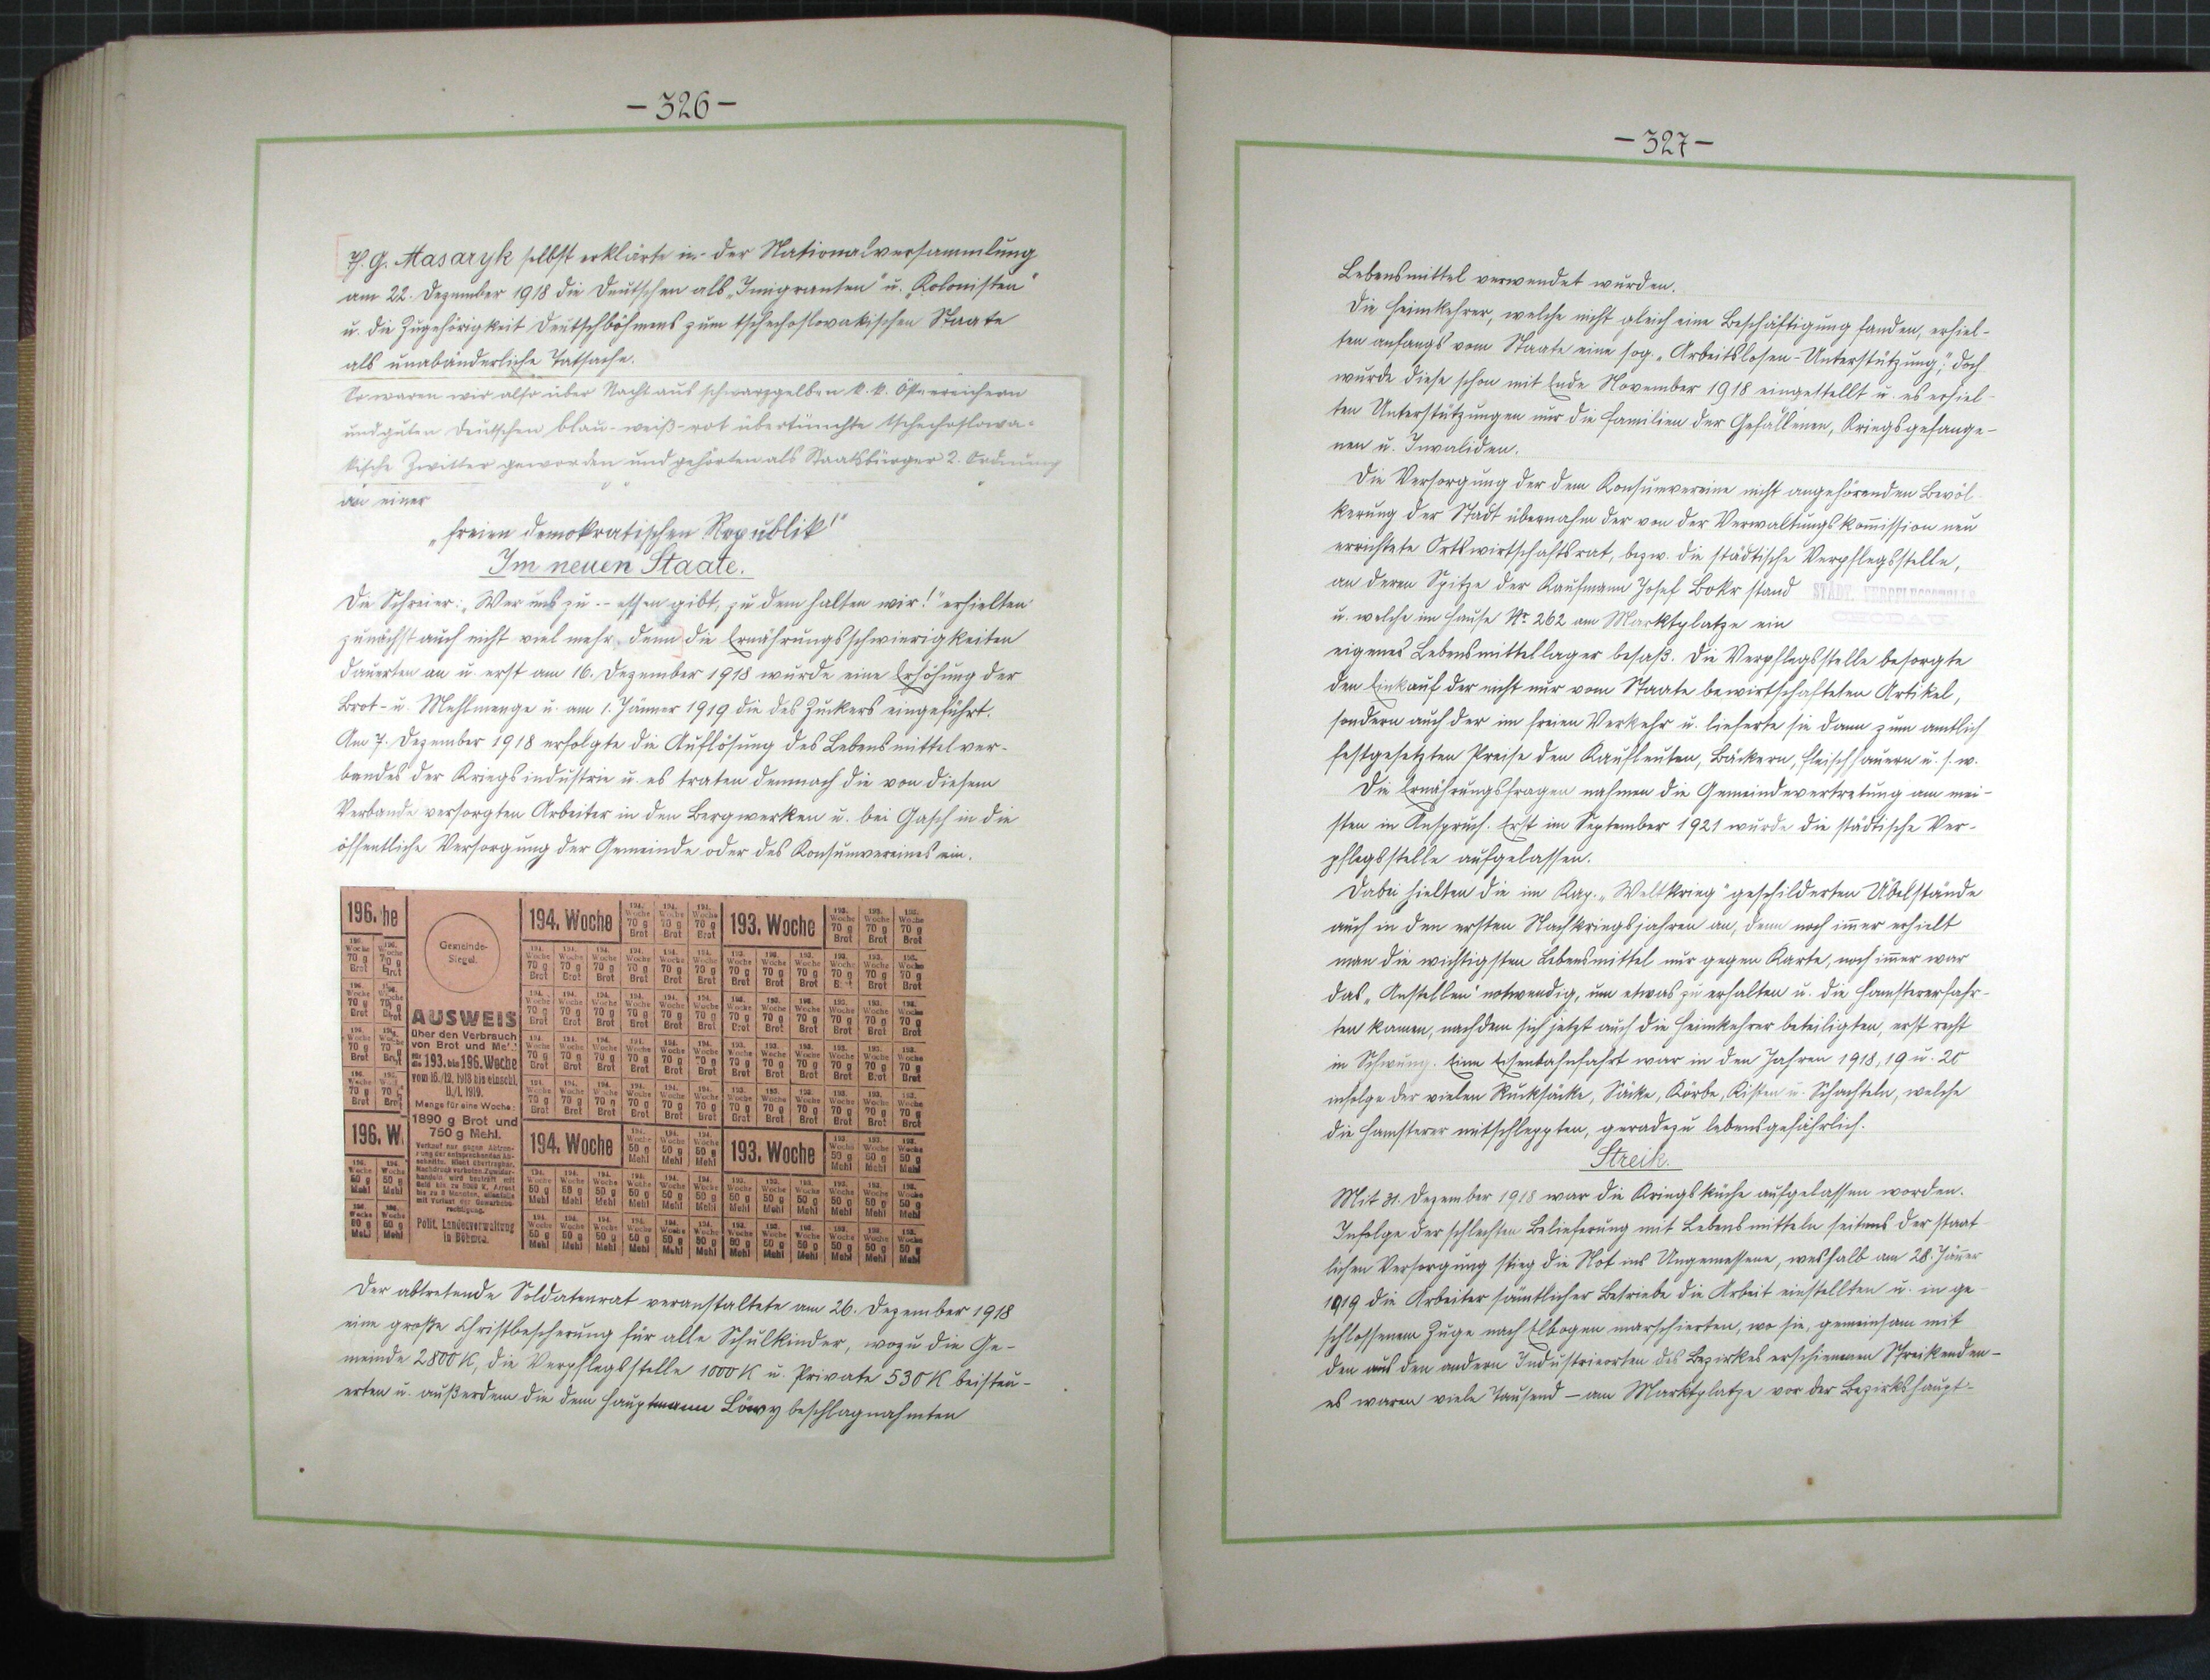 - 326 -
Th. G. Masaryk selbst erklärte in der Nationalversammlung
am 22. Dezember 1918 die Deutschen als „Imigranten" u. „Kolonisten"
u. die Zugehörigkeit Deutschböhmens zum tschechoslovakischen Staate
als unabänderliche Tatsache.
So waren wir also über Nacht aus schwarzgelben k. k. Österreichern
und guten Deutschen blau-weiß-rot übertünchte tschechoslowa-
kische Zwitter geworden und gehörten als Staatsbürger 2. Ordnung
an einer
„freien demokratischen Republik!"
Im neuen Staate.
Die Schreier: „Wer uns zu -- essen gibt, zu dem halten wir!" erhielten
zunächst auch nicht viel mehr, denn die Ernährungsschwierigkeiten
dauerten an u. erst am 16. Dezember 1918 wurde eine Erhöhung der
Brot- u. Mehlmenge u. am 1. Jänner 1919 die des Zuckers eingeführt.
Am 7. Dezember 1918 erfolgte die Auflösung des Lebensmittelver-
bandes der Kriegsindustrie u. es traten demnach die von diesem
Verbande versorgten Arbeiter in den Bergwerken u. bei Gasch in die
öffentliche Versorgung der Gemeinde oder des Konsumvereines ein.
196. he
Gemeinde-
Siegel.
194. Woche
193. Woche
70 g
Brot
AUSWEIS
über den Verbrauch
von Brot und Me
für die 193. bis 196. Woche
vom 16./12. 1918 bis einschl.
1./1. 1919.
Menge für eine Woche:
1890 g Brot und
750 g Mehl.
196. W
194. Woche
193. Woche
50 g
Mehl
Verkauf nur gegen Abtren-
nung der entsprechenden Ab-
schnitte. Nicht übertragbar.
Nachdruck verboten. Zuwider-
handeln wird bestraft mit
Geld bis zu 5000 K, Arrest
bis zu 6 Monaten, allenfalls
mit Verlust der Gewerbebe-
rechtigung.
Polit. Landesverwaltung
in Böhmen.
Der abtretende Soldatenrat veranstaltete am 26. Dezember 1918
eine große Christbescherung für alle Schulkinder, wozu die Ge-
meinde 2800 K, die Verpflegsstelle 1000 K u. Private 530 K beisteu-
erten u. außerdem die dem Hauptmann Löwy beschlagnahmten
- 327 -
Lebensmittel verwendet wurden.
Die Heimkehrer, welche nicht gleich eine Beschäftigung fanden, erhiel-
ten anfangs vom Staate eine sog. „Arbeitslosen-Unterstützung"; doch
wurde diese schon mit Ende November 1918 eingestellt u. es erhiel-
ten Unterstützungen nur die Familien der Gefallenen, Kriegsgefange-
nen u. Invaliden.
Die Versorgung der dem Konsumvereine nicht angehörenden Bevöl-
kerung der Stadt übernahm der von der Verwaltungskom̄ission neu
errichtete Ortswirtschaftsrat, bezw. die städtische Verpflegsstelle,
an deren Spitze der Kaufmann Josef Bokr stand
STÄDT. VERPFLEGSSTELLE
u. welche im Hause Nr. 262 am Marktplatze ein
eigenes Lebensmittellager besaß. Die Verpflegsstelle besorgte
den Einkauf der nicht nur vom Staate bewirtschafteten Artikel,
sondern auch der im freien Verkehr u. lieferte sie dann zum amtlich
festgesetzten Preise den Kaufleuten, Bäckern, Fleischhauern u. s. w.
Die Ernährungsfragen nahmen die Gemeindevertretung am mei-
sten in Anspruch. Erst im September 1921 wurde die städtische Ver-
pflegsstelle aufgelassen.
Dabei hielten die im Kap. „Weltkrieg" geschilderten Übelstände
auch in den ersten Nachkriegsjahren an, denn noch im̄er erhielt
man die wichtigsten Lebensmittel nur gegen Karte, noch im̄er war
das „Anstellen" notwendig, um etwas zu erhalten u. die Hamstererfahr-
ten kamen, nachdem sich jetzt auch die Heimkehrer beteiligten, erst recht
in Schwung. Eine Eisenbahnfahrt war in den Jahren 1918, 19 u. 20
infolge der vielen Rucksäcke, Säcke, Körbe, Kisten u. Schachteln, welche
die Hamsterer mitschleppten, geradezu lebensgefährlich.
Streik.
Mit 31. Dezember 1918 war die Kriegsküche aufgelassen worden.
Infolge der schlechten Belieferung mit Lebensmitteln seitens der staat-
lichen Versorgung stieg die Not ins Ungemessene, weshalb am 28. Jän̄er
1919 die Arbeiter sämtlicher Betriebe die Arbeit einstellten u. in ge-
schlossenem Zuge nach Elbogen marschierten, wo sie, gemeinsam mit
den aus den andern Industrieorten des Bezirkes erschienenen Streikenden -
es waren viele Tausend - am Marktplatze vor der Bezirkshaupt-